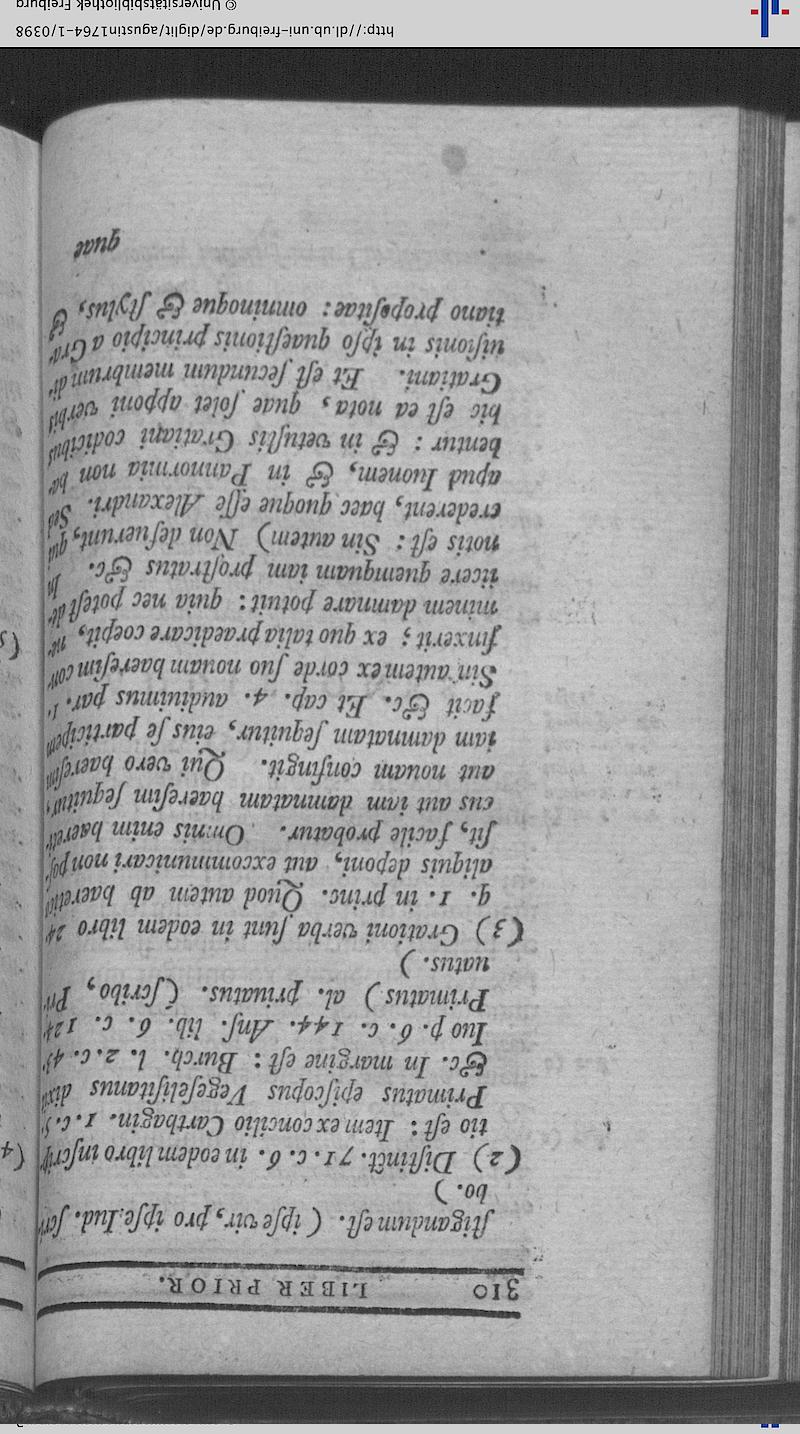 310 LIBER PRIOR.
ſtigandum eſt. ( ipſe vir, pro ipſe Iud. ſcri
bo. )
(2) Diſtinct. 71. c. 6. in eodem libro inſcrip
tio eſt : Item ex concilio Carthagin. 1. c. 5.
Primatus epiſcopus Vegeſeliſitanus dixit
&c. In margine eſt : Burch. l. 2. c. 43
Iuo p. 6. c. 144. Anſ. lib. 6. c. 124
Primatus ) al. priuatus. ( ſcribo, Pri
uatus. )
(3) Grationi verba ſunt in eodem libro 24
q. 1. in princ. Quod autem ab haeretico
aliquis deponi, aut excommunicari non poſ
ſit, facile probatur. Omnis enim haereti
cus aut iam damnatam haereſim ſequitur,
aut nouam confingit. Qui vero haereſim
iam damnatam ſequitur, eius ſe participem
facit &c. Et cap. 4. audiuimus par. 1.
Sin autem ex corde ſuo nouam haereſim con
finxerit ; ex quo talia praedicare coepit, ne
minem damnare potuit : quia nec poteſt de
iicere quemquam iam proſtratus &c. In
notis eſt : Sin autem) Non defuerunt, qui
crederent, haec quoque eſſe Alexandri. Sed
apud Iuonem, & in Pannormia non ha
bentur : & in vetuſtis Gratiani codicibus
hic eſt ea nota, quae ſolet apponi verbis
Gratiani. Et eſt ſecundum membrum di
uiſionis in ipſo quaeſtionis principio a Gra
tiano propoſitae : omninoque & ſtylus, &
quae
http://dl.ub.uni-freiburg.de/diglit/agustin1764-1/0398
© Universitätsbibliothek Freiburg